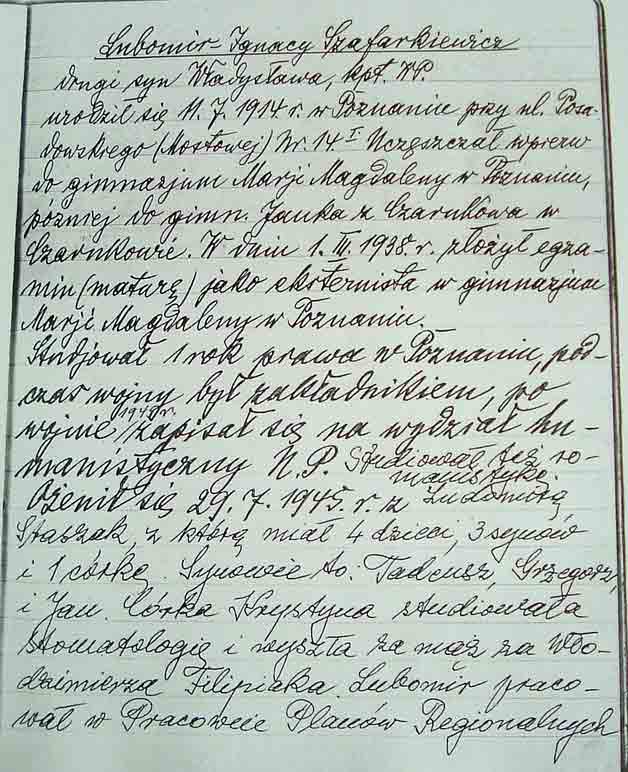 Lubomir-Ignacy Szafarkiewicz
drugi syn Władysława, kpt. WP.
urodził się 11.7.1914 r. w Poznaniu przy ul. Posa-
dowskiego (Mostowej) Nr. 14 I Uczęszczał wpierw
do gimnazjum Marji Magdaleny w Poznaniu,
później do gimn. Janka z Czarnkowa w
Czarnkowie. W dniu 1. III. 1938. r. złożył egza-
min (maturę) jako eksternista w gimnazjum
Marji Magdaleny w Poznaniu.
Studjował 1 rok prawa w Poznaniu, pod-
czas wojny był zakładnikiem, po
wojnie 1945 r. zapisał się na wydział hu-
manistyczny U.P. Studiował też ro-
manistykę.
Ożenił się 29.7.1945. r. z Ludomirą
Staszak, z którą miał 4 dzieci, 3 synów
i 1 córkę. Synowie to: Tadeusz, Grzegorz,
i Jan. Córka Krystyna studiowała
stomatologię i wyszła za mąż za Wło-
dzimierza Filipiaka. Lubomir praco-
wał w Pracowcie Planów Regionalnych